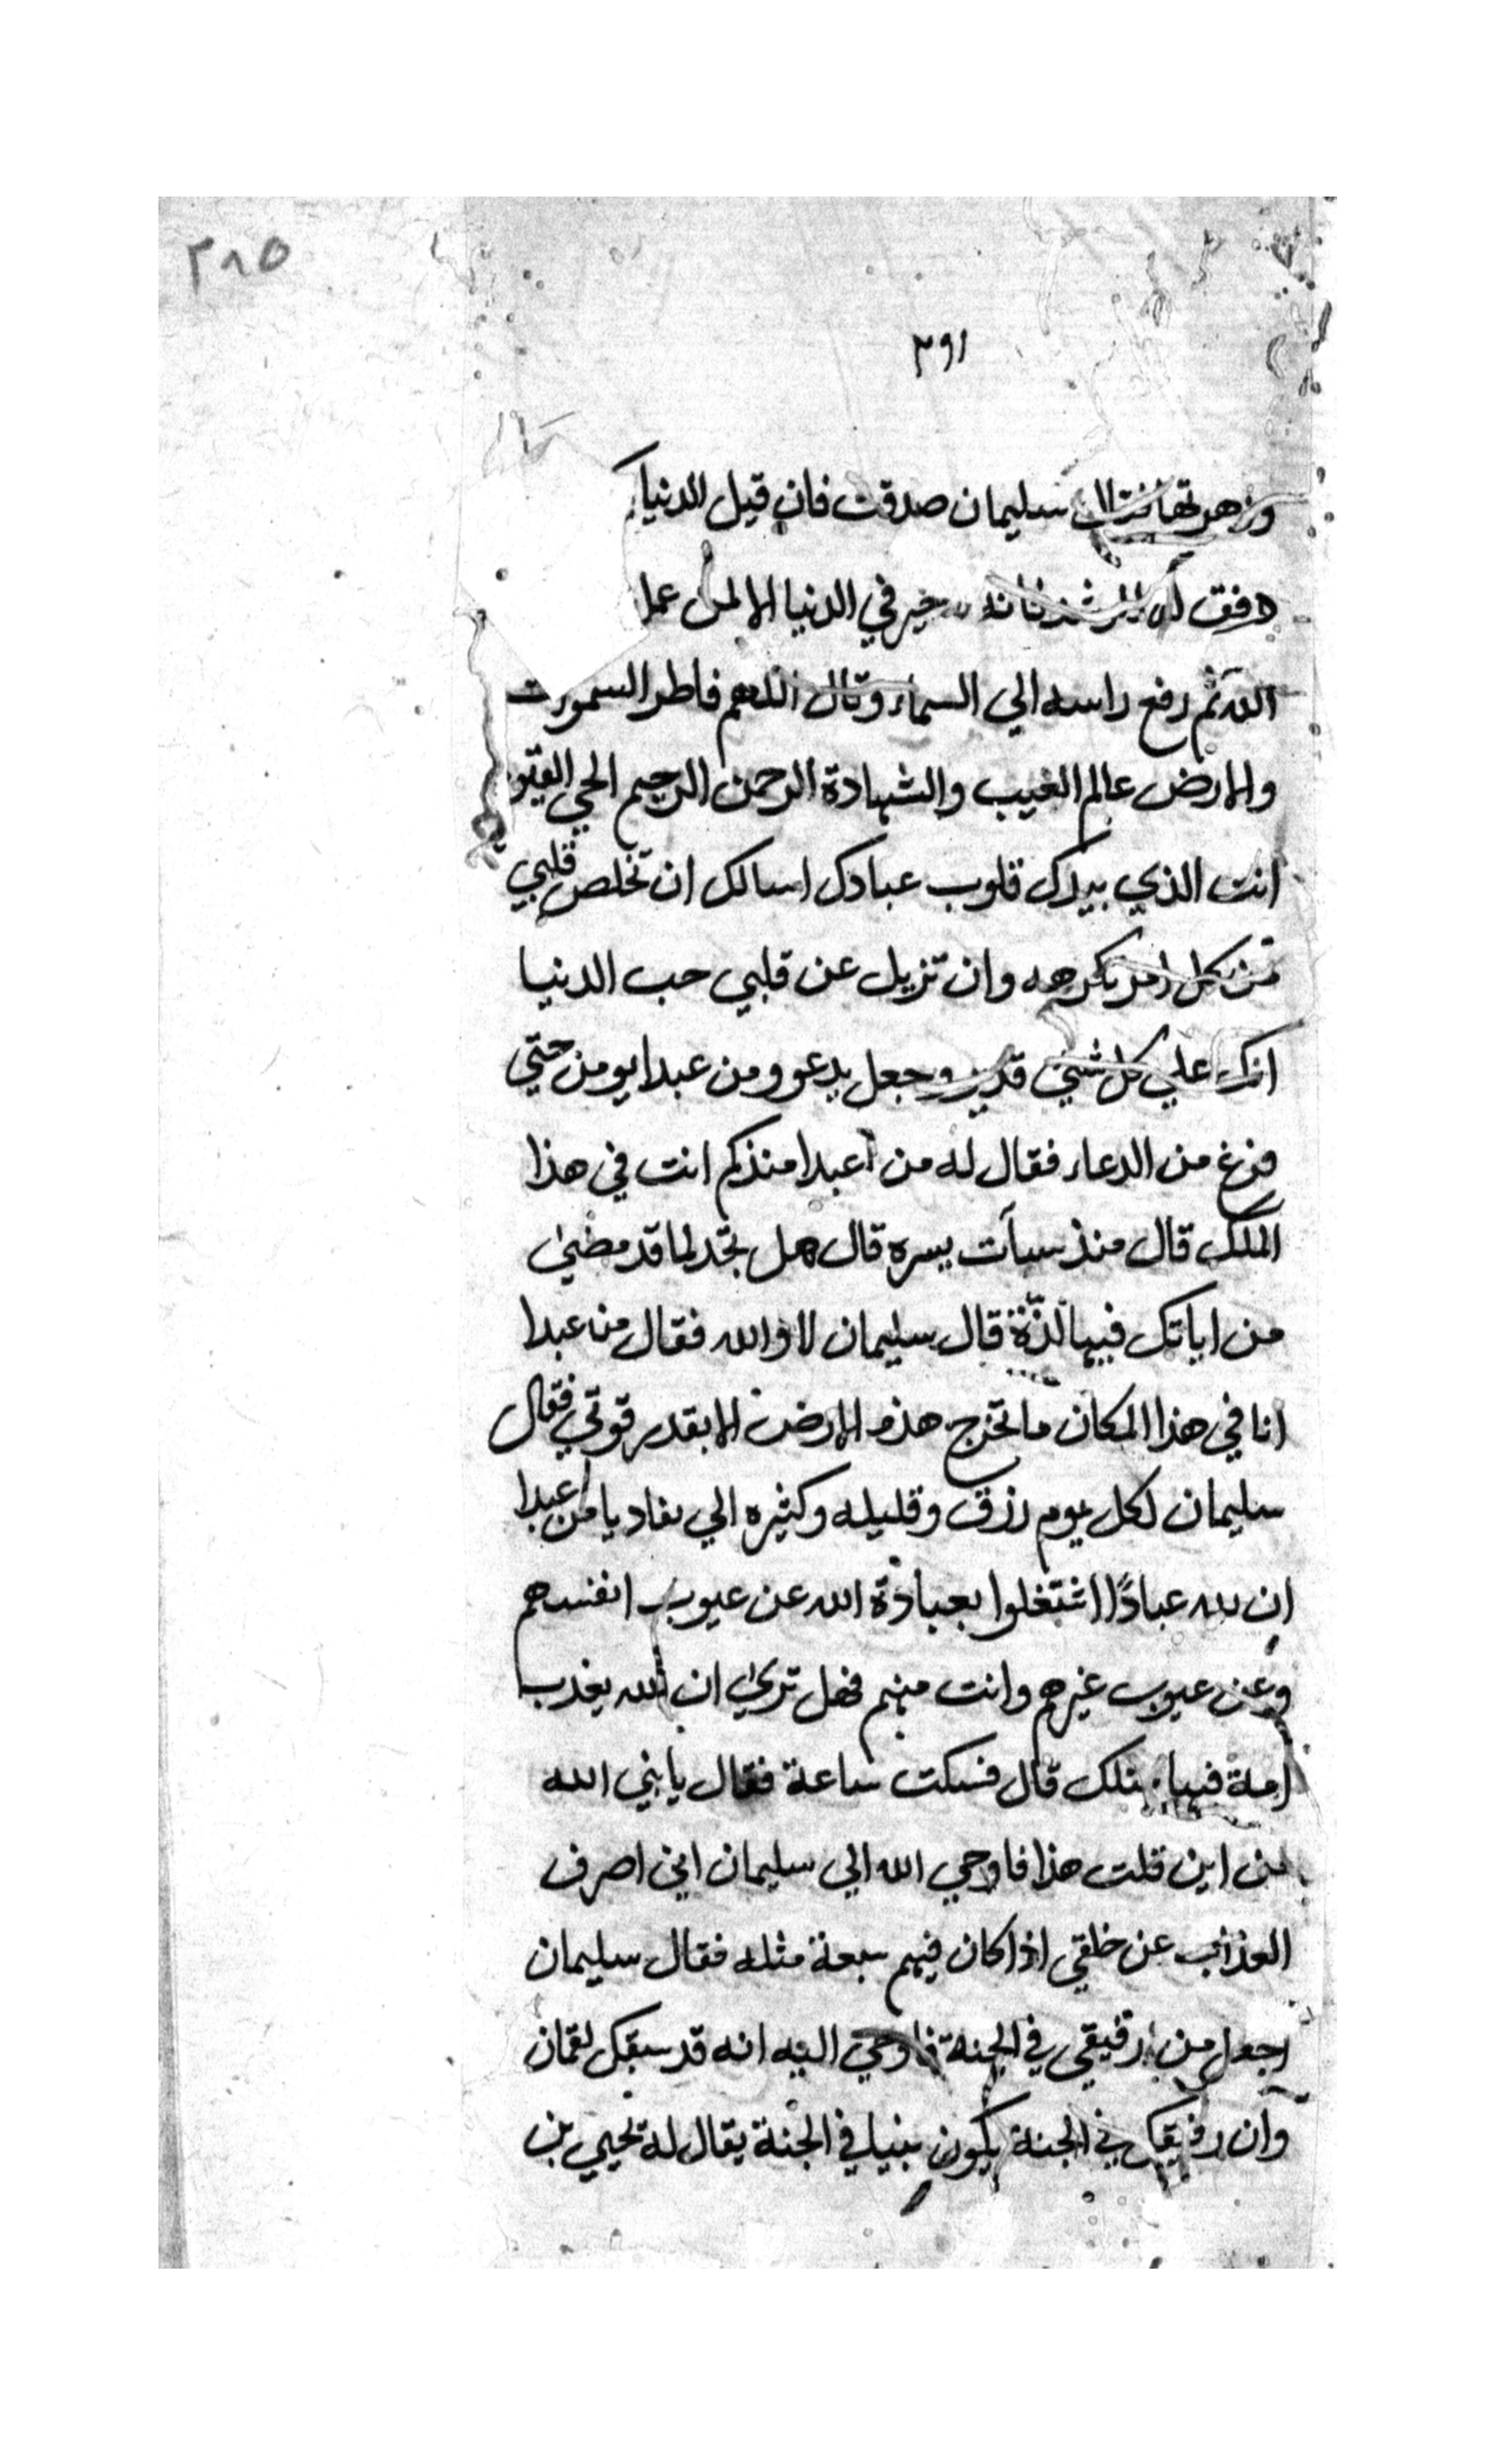 ٣٨٥
٣٩١
وزهرتها فقال سليمان صدقت فان قيل الدنيا
فانه خير في الدنيا الا لمن عمل
الله ثم رفع راسه الي السماء وقال اللهم فاطر السموات
والارض عالم الغيب والشهادة الرحمن الرحيم الحي القيو
انت الذي بيدك قلوب عبادك اسالك ان تخلص قلبي
من كل امر تكرهه وان تزيل عن قلبي حب الدنيا
انك علي كل شيئ قدير وجعل يدعو ومن عبدا يومن حتي
فرغ من الدعاء فقال له من اعبدا منذكم انت في هذا
الملك قال منذ سيآت يسره قال هل تجد لما قد مضي
من اياتك فيها لذّة قال سليمان لا والله فقال من عبدا
انا في هذا المكان ما تخرج هذه الارض الا بقدر قوتي فقال
سليمان لكل يوم رزق وقليله وكثيره الي نفاد يا من عبدا
ان لله عبادًا اشتغلوا بعبادة الله عن عيوب انفسهم
وعن عيوب غيرهم وانت منهم فهل تري ان الله يعذب
امة فيها مثلك قال فسكت ساعة فقال يا نبي الله
من اين قلت هذا فاوحي الله الي سليمان اني اصرف
العذاب عن خلقي اذا كان فيهم سبعة مثله فقال سليمان
اجعل من رفيقي في الجنة فاوحي اليه انه قد سبقك لقمان
وان رفيقك في الجنة يكون بنيا في الجنة يقال له يحيي بن